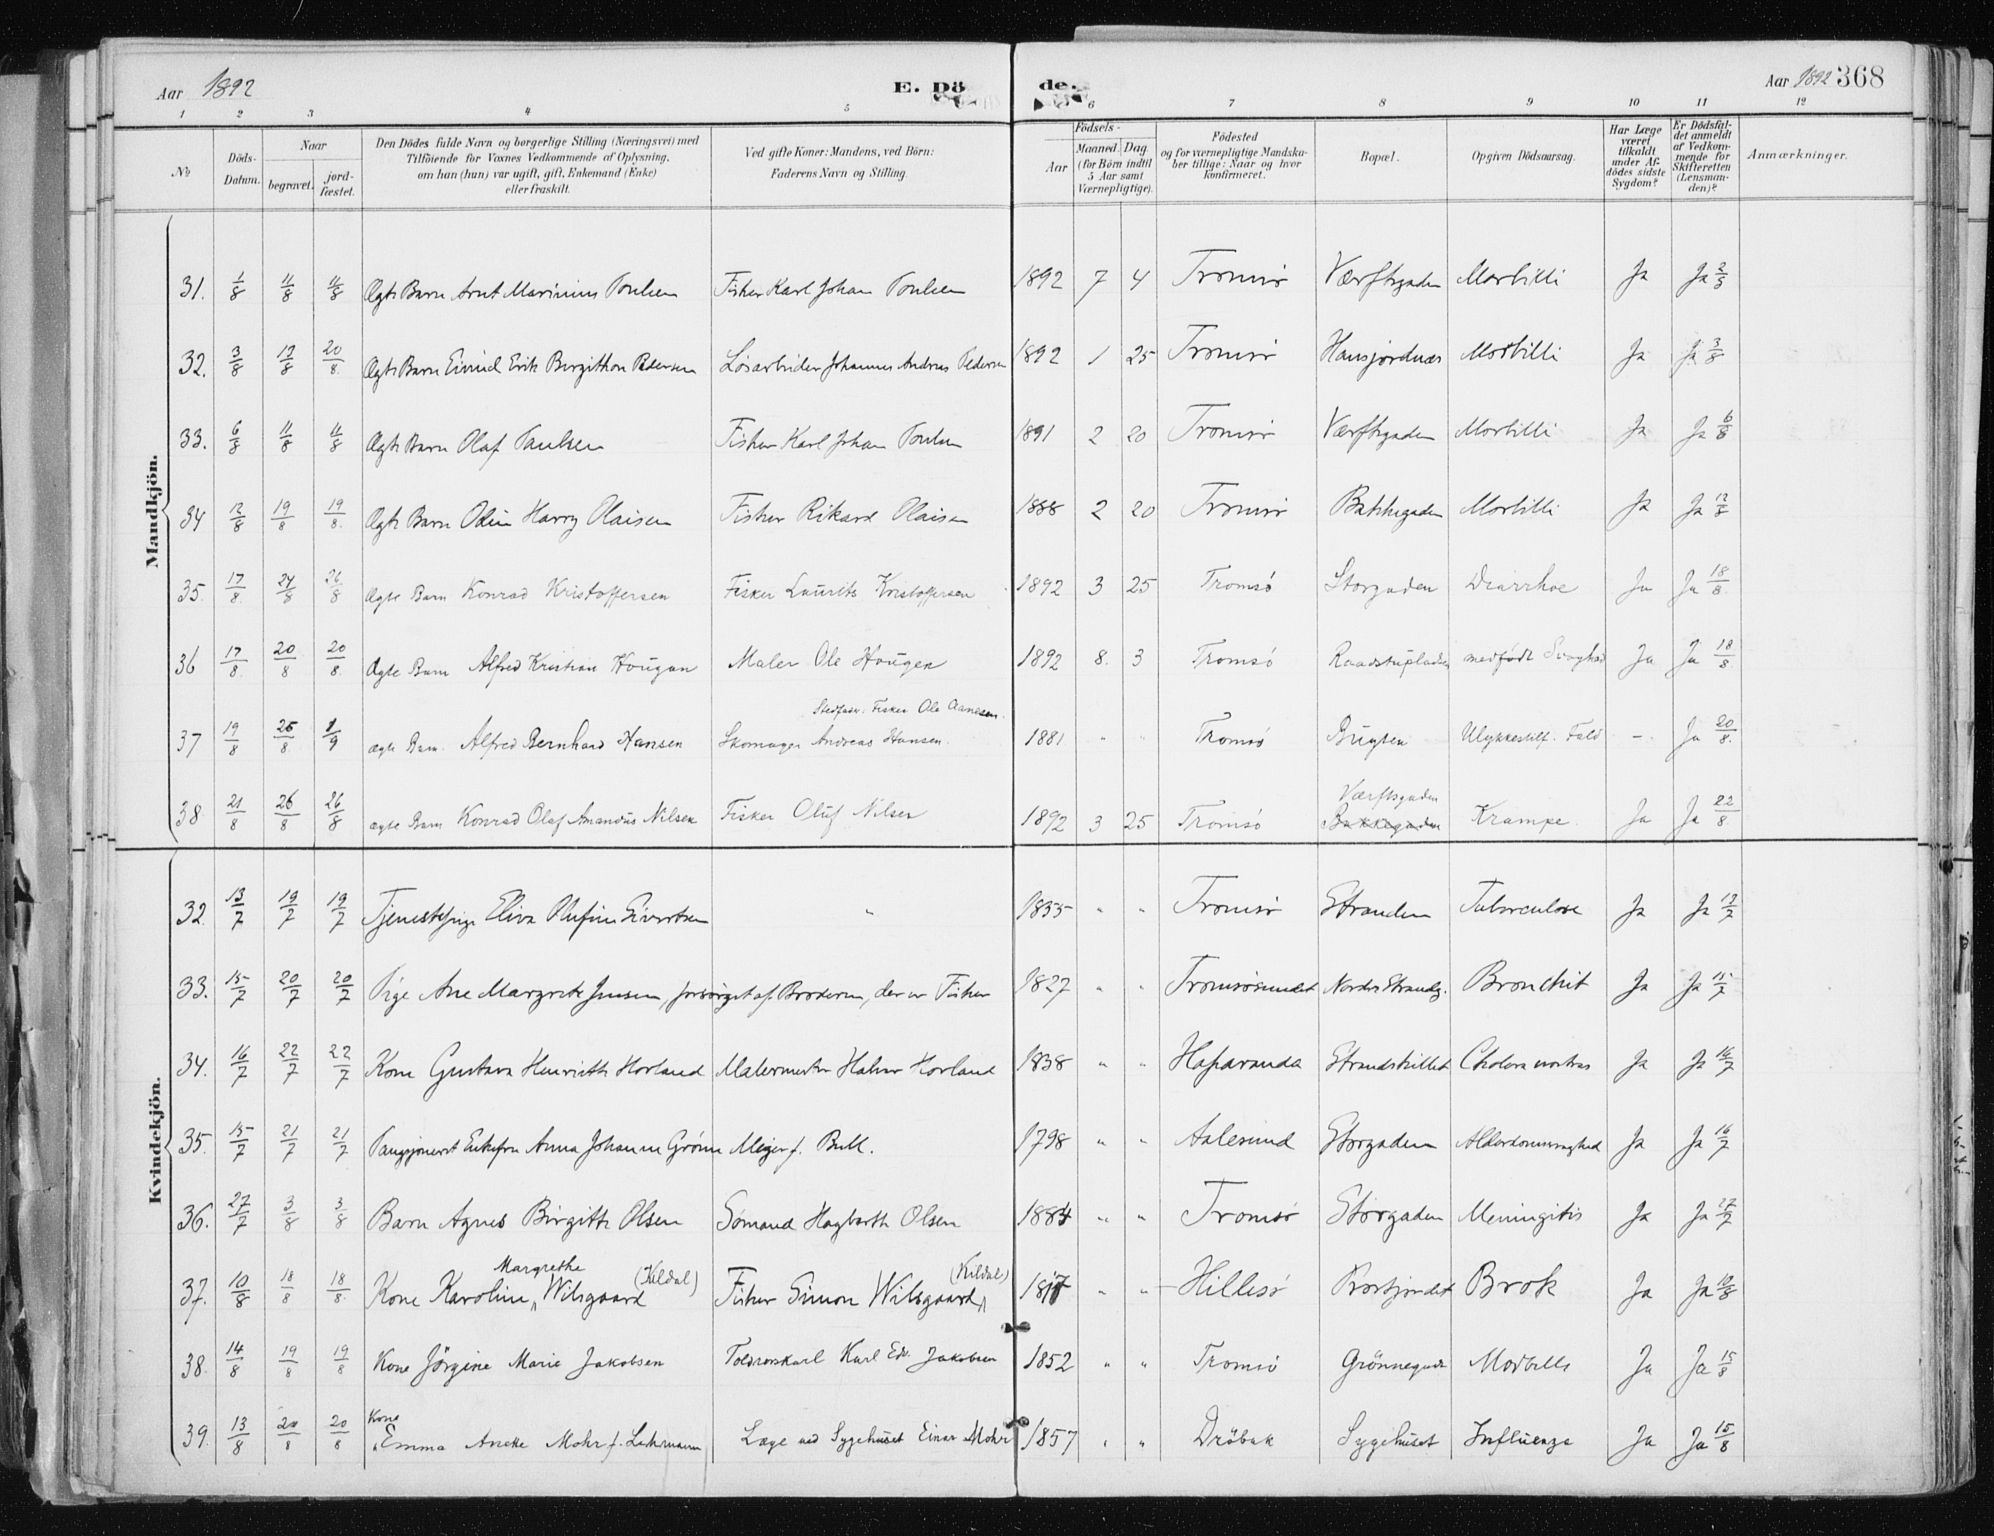 Aar 1892 E. Dö de. Aar 1892 368
1 2 3 4 5 6 7 8 9 10 11 12
No Döds-Datum. Naar begravet. jordfæstet. Den Dödes fulde Navn og borgerlige Stilling (Næringsvei) med Tilföiende for Voxnes Vedkommende af Oplysning, om han (hun) var ugift, gift, Enkemand (Enke) eller fraskilt. Ved gifte Koner: Mandens, ved Börn: Faderens Navn og Stilling. Födsels- Aar Maaned. Dag (for Börn indtil 5 Aar samt Værnepligtige). Födested og for værnepligtige Mandskaber tillige: Naar og hvor konfirmeret. Bopæl. Opgiven Dödsaarsag. Har Læge været tilkaldt under Afdödes sidste Sygdom? Er Dödsfaldet anmeldt af Vedkommende for Skifteretten (Lensmanden)? Anmærkninger.
Mandkjön.
31. 1/8 11/8 11/8 Ægte Barn Arnt Marinius Poulsen Fisker Karl Johan Poulsen 1892 7 4 Tromsø Værftsgaden Morbilli Ja Ja 2/8
32. 3/8 17/8 20/8 Ægte Barn Eivind Erik Birgithon Pedersen Løsarbeider Johannes Andreas Pedersen 1892 1 25 Tromsø Hansjordnæs Morbilli Ja Ja 3/8
33. 6/8 11/8 11/8 Ægte Barn Olaf Paulsen Fisker Karl Johan Poulsen 1891 2 20 Tromsø Værftsgaden Morbilli Ja Ja 6/8
34 12/8 19/8 19/8 Ægte Barn Odin Harry Olaisen Fisker Rikard Olaisen 1888 2 20 Tromsø Bakkegaden Morbilli Ja Ja 12/8
35. 17/8 24/8 26/8 Ægte Barn Konrad Kristoffersen Fisker Laurits Kristoffersen 1892 3 25 Tromsö Storgaden Diarrhoe Ja Ja 18/8
36 17/8 20/8 20/8 Ægte Barn Alfred Kristian Hougan Maler Ole Hougen 1892 8. 3 Tromsö Raadstupladsen medfødt Svaghed Ja Ja 18/8
Stedfader: Fisker Ole Aanesen.
37 19/8 25/8 1/9 ægte Barn Alfred Bernhard Hansen Skomager Andreas Hansen. 1881 " " Tromsö Bugten Ulykkestilf. Fald - Ja 20/8
Værftsgaden
38 21/8 26/8 26/8 ægte Barn Konrad Olaf Amandus Nilsen Fisker Oluf Nilsen 1892 3 25 Tromsö Bakkegaden Krampe. Ja Ja 22/8
Kvindekjön.
32. 13/7 19/7 19/7 Tjenestepige Elisa Olufine Sivertsen " 1855 " " Tromsø Stranden Tuberculose Ja Ja 13/7
33. 15/7 20/7 20/7 Pige Ane Margrete Jensen, forsørget af Broderen, der er Fisker 1827 " " Tromsøsundet Nordre Strandg. Bronchit Ja Ja 15/7
34. 16/7 22/7 22/7 Kone Gustava Henriette Horland Malermester Halvor Horland 1838 " " Haparanda Strandskillet Cholera nostras Ja Ja 16/7
35. 15/7 21/7 21/7 Pensjoneret Enkefru Anna Johanne Grønn Meyer f. Bull. 1798 " " Aalesund Storgaden Alderdomssvaghed Ja Ja 16/7
36. 27/7 3/8 3/8 Barn Agnes Birgitte Olsen Sømand Hagbarth Olsen 1884 " " Tromsø Storgaden Meningitis Ja Ja 27/7
Margrethe (Kildal) (Kildal)
37. 10/8 18/8 18/8 Kone Karoline Wilsgaard Fisker Simon Wilsgaard 1817 " " Hillesø Brok Ja Ja 10/8
38. 14/8 19/8 19/8 Kone Jörgine Marie Jakobsen Toldroskarl Karl Edv. Jakobsen 1852 " " Tromsø Grönnegade Morbilli Ja Ja 15/8
Kone
39. 13/8 20/8 20/8 Emma Aneke Mohr f. Lehrmann Læge ved Sygehuset Einar Mohr 1857 " " Dröbak Sygehuset Influenza Ja Ja 15/8